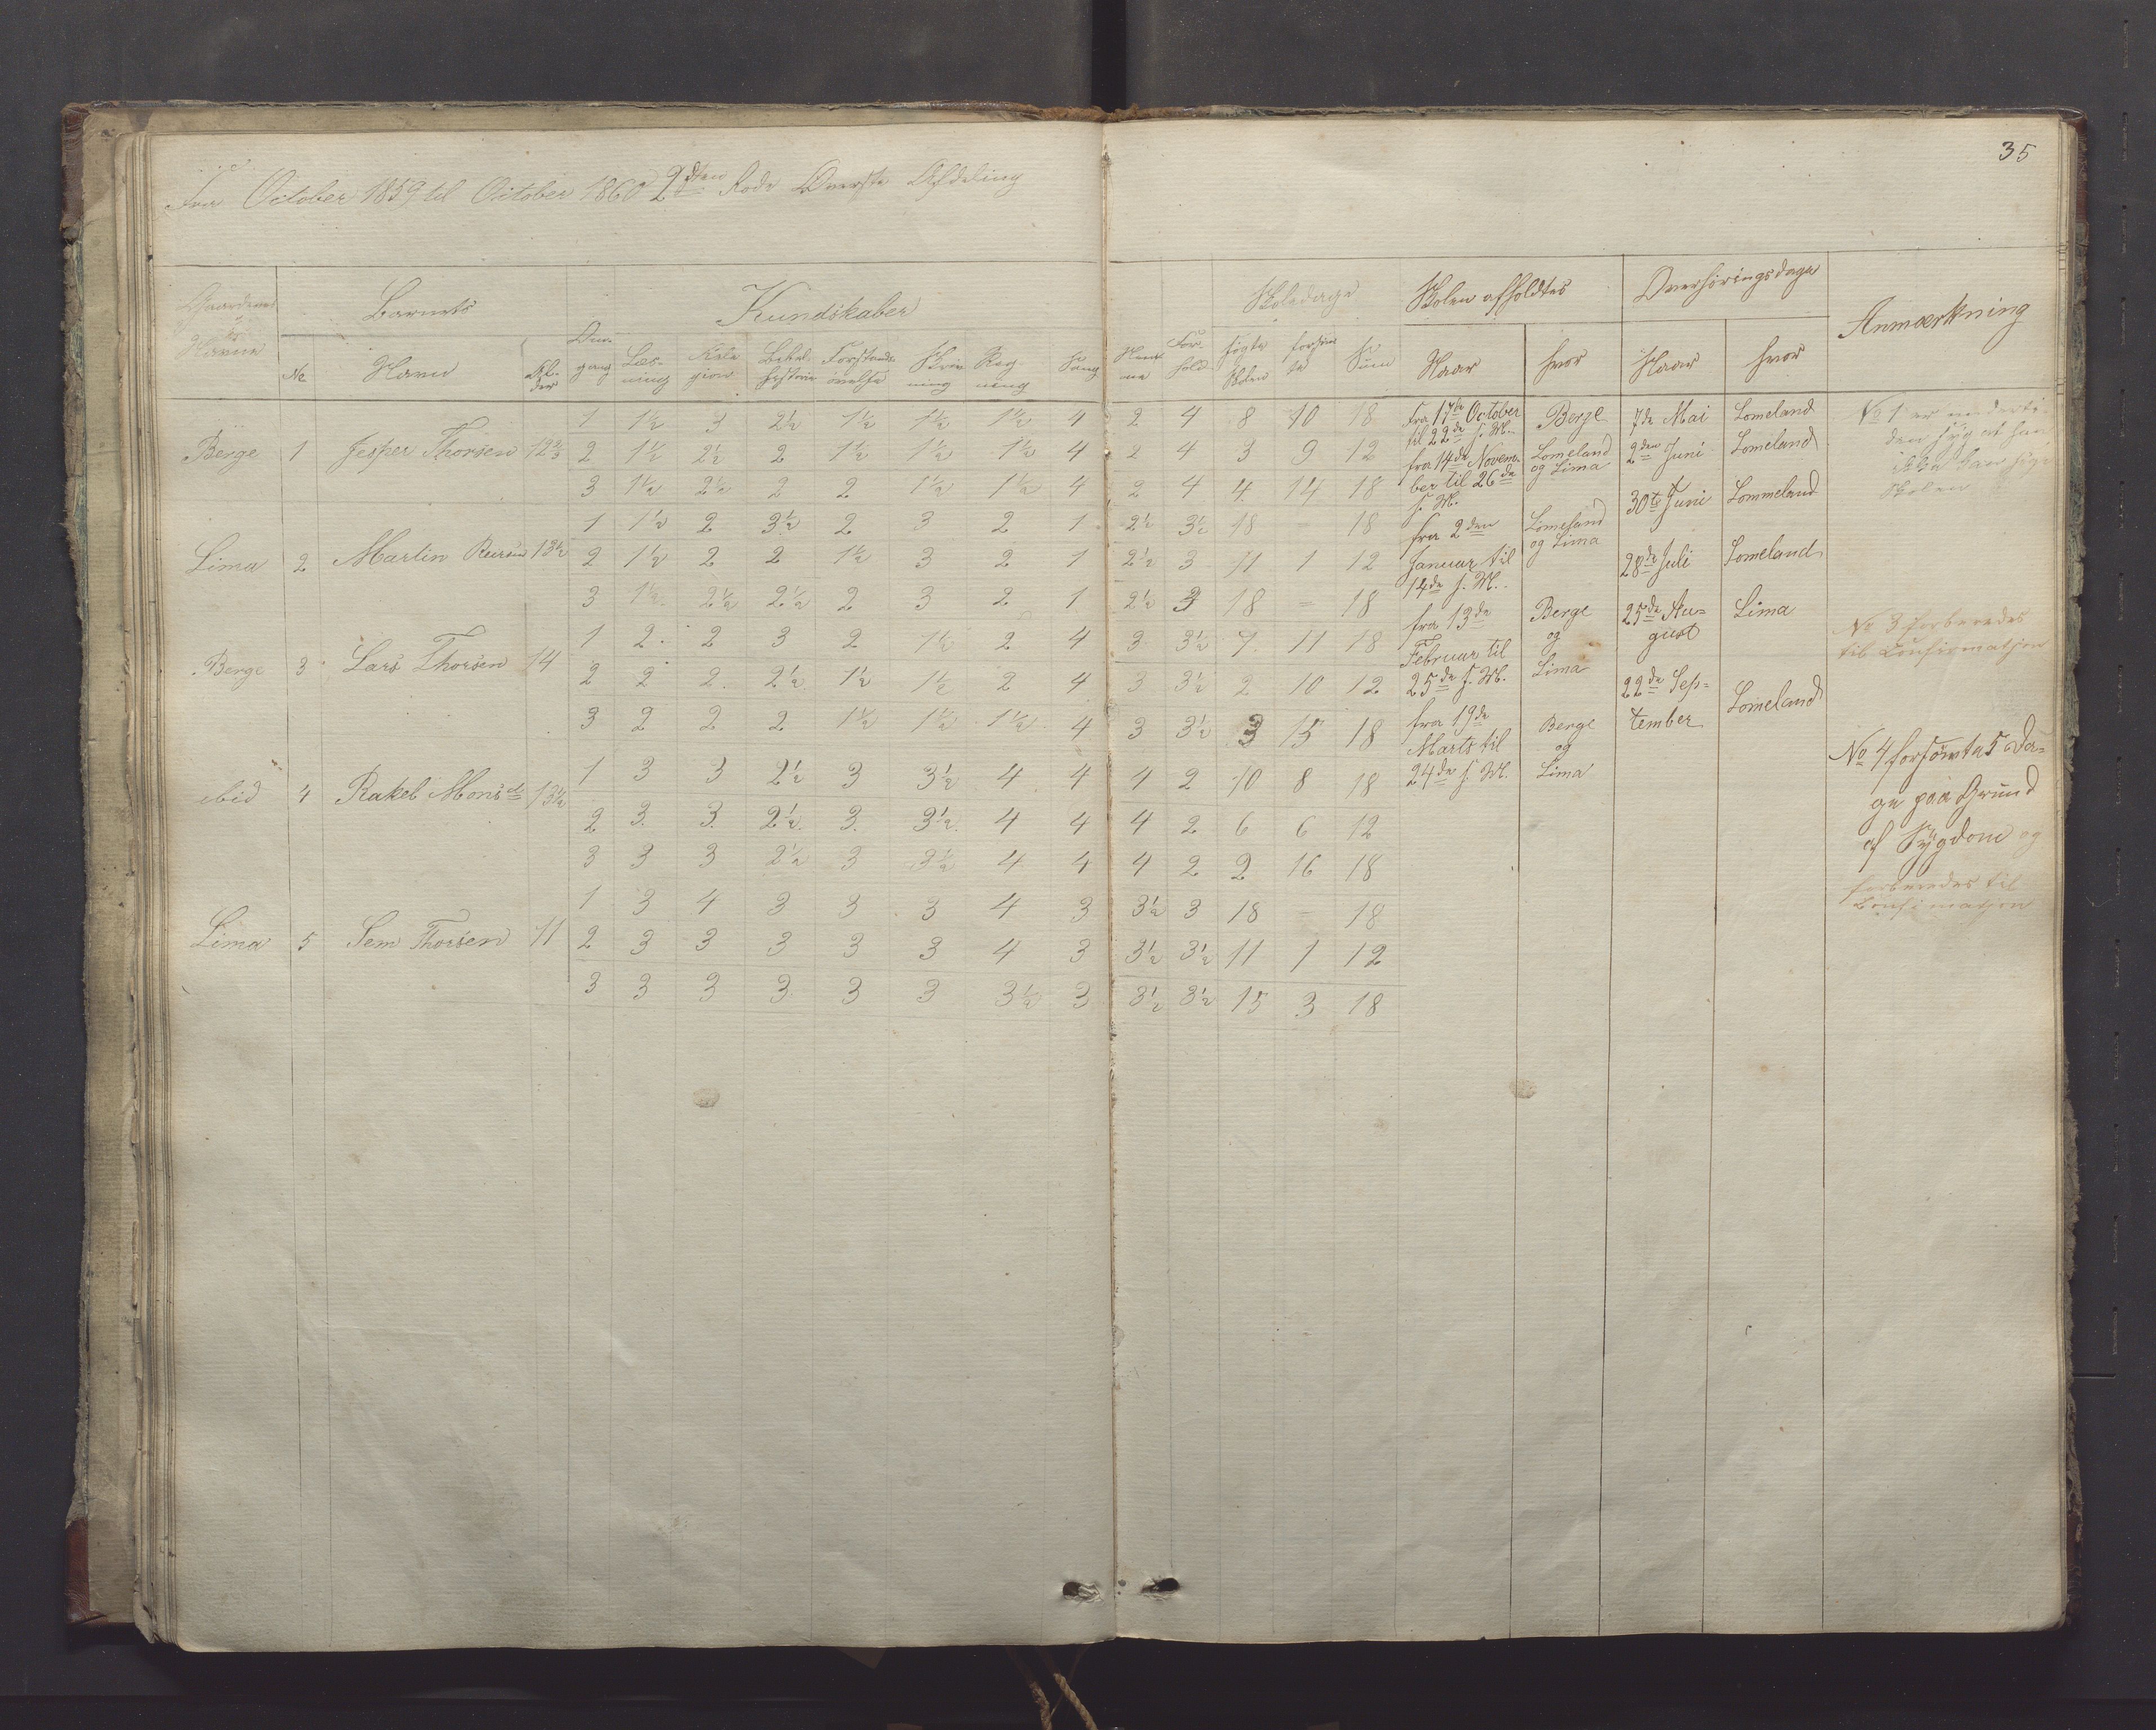 35
Fra October 1859 til October 1860 2den Rode Øverste Afdeling
Gaardenes Navne | Barnets | Kundskaber | Skoledage | Skolen afholdtes | Overhøringsdage | Anmærkning
No | Navn | Al-der | Om-gang | Læs-ning | Reli gion | Bibel historie | Forstands øvelse | Skriv ning | Reg ning | Sang | Nem me | For-hold | søgte Skolen | forsøm te | Sum | Naar | hvor | Naar | hvor
Berge 1 Jesper Thorsen 12 2/3
1 1½ 3 2½ 1½ 1½ 1½ 4 2 4 8 10 18
2 1½ 2½ 2 1½ 1½ 1½ 4 2 4 3 9 12
3 1½ 2½ 2 2 1½ 1½ 4 2 4 4 14 18
Lima 2 Martin 13½
1 1½ 2 3½ 2 3 2 1 2½ 3½ 18 - 18
2 1½ 2 2 1½ 3 2 1 2½ 3 11 1 12
3 1½ 2½ 2½ 2 3 2 1 2½ 3 18 = 18
Berge 3 Lars Thorsen 14
1 2 2 3 2 1½ 2 4 3 3½ 7 11 18
2 2 2 2½ 1½ 1½ 2 4 3 3½ 2 10 12
3 2 2 2 1½ 1½ 1½ 4 3 3½ 3 15 18
ibid 4 Rakel Monsd 13½
1 3 3 2½ 3 3½ 4 4 4 2 10 8 18
2 3 3 2½ 3 3½ 4 4 4 2 6 6 12
3 3 3 2½ 3 3½ 4 4 4 2 2 16 18
Lima 5 Sem Thorsen 11
1 3 4 3 3 3 4 3 3½ 3 18 - 18
2 3 3 3 3 3 4 3 3½ 3½ 11 1 12
3 3 3 3 3 3 3½ 3 3½ 3½ 15 3 18
fra 17de October
til 22de s. M.
Berge
fra 14de Novem-
ber til 26de
s. M.
Lomeland
og Lima
fra 2den
Januar til
14de s. M.
Lomeland
og Lima
fra 13de
Februar til
25de s. M.
Berge
og
Lima
fra 19de
Marts til
24de s. M.
Berge
og
Lima
7de Mai Lomeland
2den Juni Lomeland
30te Juni Lommeland
28de Juli Lomeland
25de Au=
gust
Lima
22de Sep=
tember
Lomeland
No 1 er underti-
den syg at han
ikke kan søge
Skolen
No 3 forberedes
til Confirmatjon
No 4 forsømte 5 Da=
ge paa Grund
af Sygdom og
forberedes til
Confirmatjon